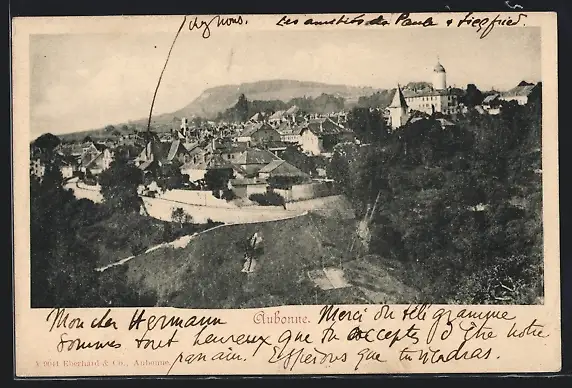 Les amitiés de Paula & Siegfried.
Aubonne.
Mon cher Hermann Merci du télégramme
sommes tout heureux que tu acceptes d'être notre
parrain. Espérons que tu viendras.
Nº 9941 Eberhard & Co., Aubonne.